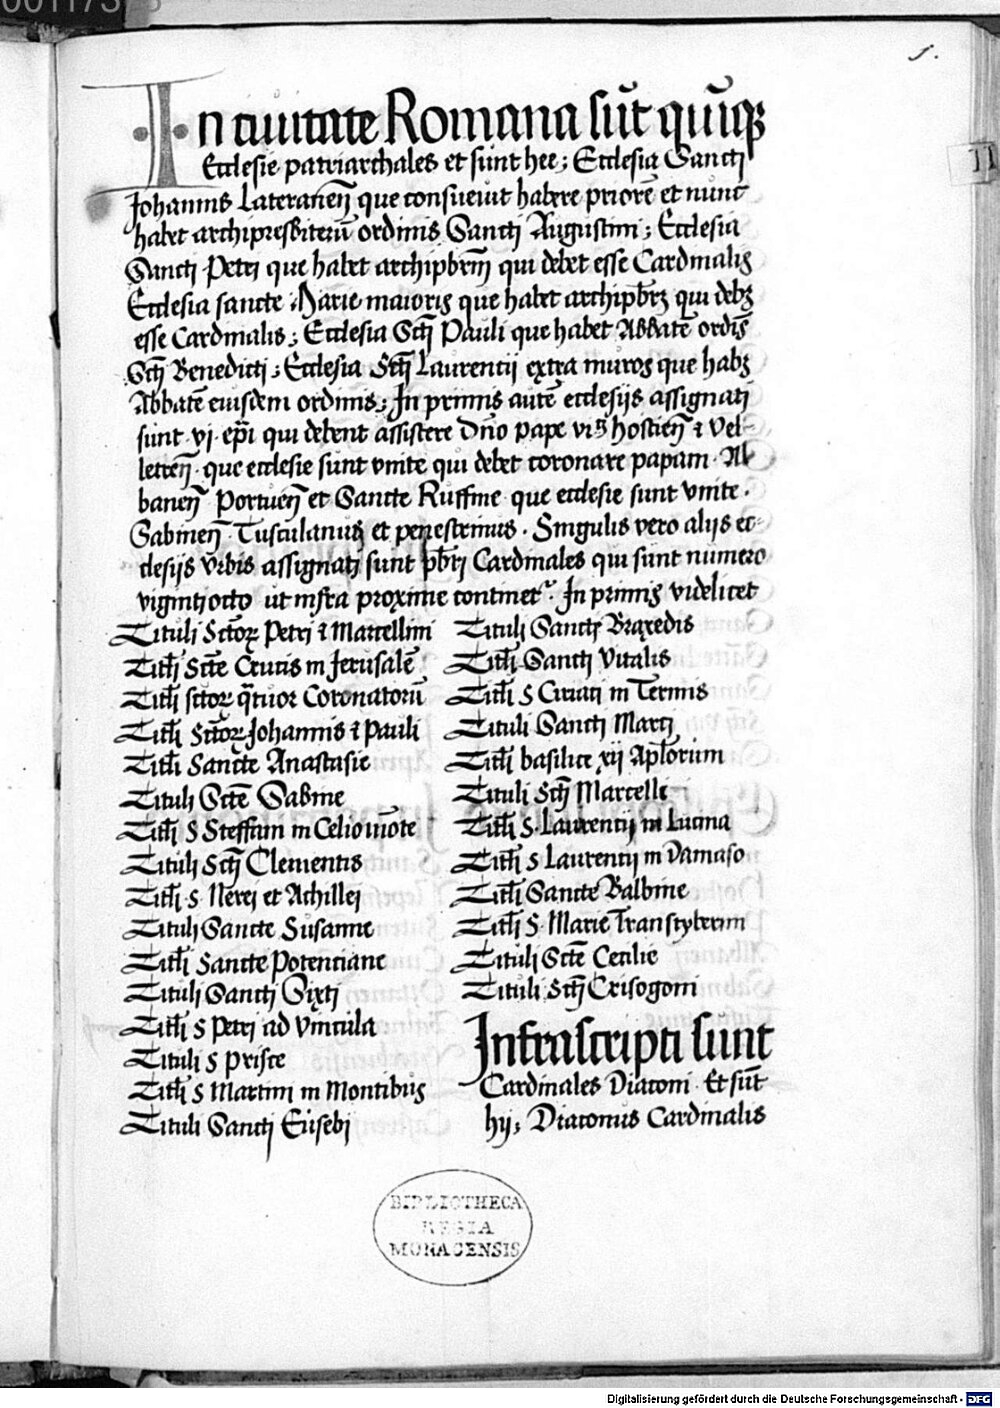 1.
In ciuitate Romana sūt quīqꝫ
Ecclesie patriarchales et sunt hee; Ecclesia Sancti
Johannis Lateranen̄ que consueuit habere priorē et nunc
habet archipresbiterū ordinis Sancti Augustini; Ecclesia
Sancti Petri que habet archipbrm̄ qui debet esse Cardinalis
Ecclesia sancte Marie maioris que habet archipbrꝫ qui debꝫ
esse Cardinalis; Ecclesia Scti Pauli que habet Abbatē ordīs
Scti Benedicti; Ecclesia Scti Laurentij extra muros que habꝫ
Abbatē eiusdem ordinis; In primis autē ecclesijs assignati
sunt vj ep̄i qui debent assistere Dn̄o pape viꝫ hostien̄ ⁊ Vel-
letren̄ que ecclesie sunt vnite qui debet coronare papam. Al
banen̄ Portuen̄ et Sancte Ruffine que ecclesie sunt vnite.
Sabinen̄ Tusculanus et penestrinus. Singulis vero alijs ec-
clesijs vrbis assignati sunt pbr̄i Cardinales qui sunt numero
vigintiocto ut infra proxime continet. In primis videlicet
Tituli Sctoꝝ Petri ⁊ Marcellini
Titli Scte Crucis in Jerusalē
Titli sctoꝝ q̄tuor Coronatorū
Titli Sctoꝝ Johannis ⁊ Pauli
Titli Sancte Anastasie
Tituli Scte Sabine
Titli S Steffani in Celiomōte
Tituli Scti Clementis
Titli S. Nerei et Achillei
Tituli Sancte Susanne
Titli Sancte Potenciane
Tituli Sancti Sixti
Titli S Petri ad Vincula
Tituli S Prisce
Titli S Martini in Montibus
Tituli Sancti Eusebi
Tituli Sancte Braxedis
Titli Sancti Vitalis
Titli S Ciriaci in Termis
Tituli Sancti Marci
Titli basilice xij Aplorum
Tituli Scti Marcelli
Titli S. Laurentij in Lucina
Titli S Laurentij in Damaso
Titli Sancte Balbine
Titli S. Marie Transtyberim
Tituli Scte Cecilie
Tituli Scti Crisogoni
Infrascripti sunt
Cardinales Diaconi. Et sūt
hij; Diaconus Cardinalis
BIBLIOTHECA
REGIA
MONACENSIS
Digitalisierung gefördert durch die Deutsche Forschungsgemeinschaft - DFG